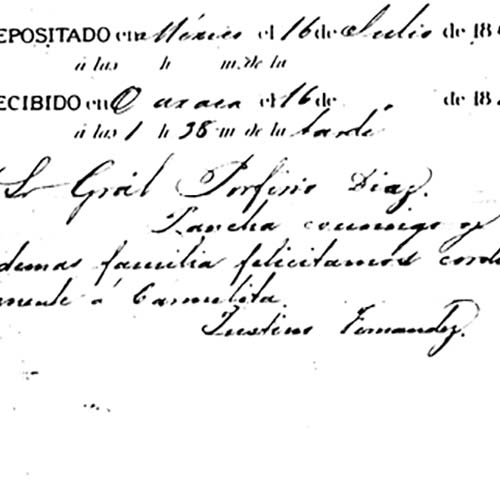 EPOSITADO en Mexico el 16 de Julio de 18
á las h m. de la
ECIBIDO en Oaxaca el 16 de , de 18
á las 1 h 38 m de la tarde
Sr Grãl Porfirio Diaz.
Pancha conmigo y
demas familia felicitamos cordi
mente á Carmelita.
Justino Fernandez.